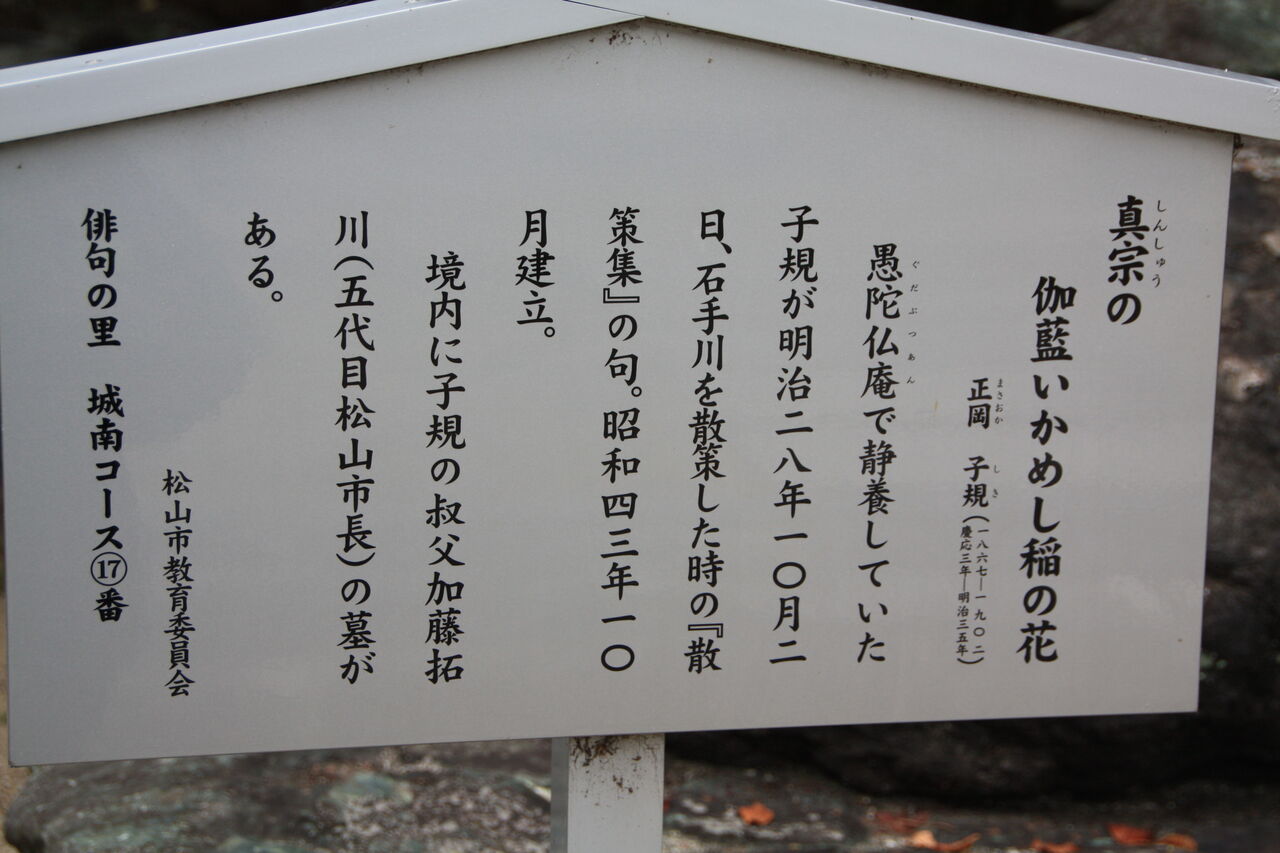 真宗の
しんしゅう
伽藍いかめし稲の花
正岡 子規(一八六七―一九〇二
慶応三年―明治三五年)
まさおか しき
愚陀仏庵で静養していた
ぐだぶつあん
子規が明治二八年一〇月二
日、石手川を散策した時の『散
策集』の句。昭和四三年一〇
月建立。
境内に子規の叔父加藤拓
川(五代目松山市長)の墓が
ある。
松山市教育委員会
俳句の里 城南コース⑰番